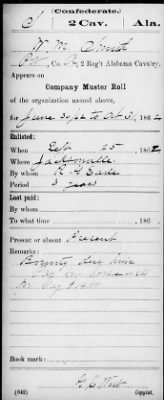 (Confederate.)
S 2 Cav. Ala.
W. M. Smith
Pvt., Co. , 2 Reg't Alabama Cavalry.
Appears on
Company Muster Roll
of the organization named above,
for June 30/62 to Oct 31, 1862
Enlisted:
When Sept 25, 1862
Where Jacksonville
By whom
Period 3 years
Last paid:
By whom
To what time , 186
Present or absent Present
Remarks:
Bounty due him

Book mark:
(642) Copyist.